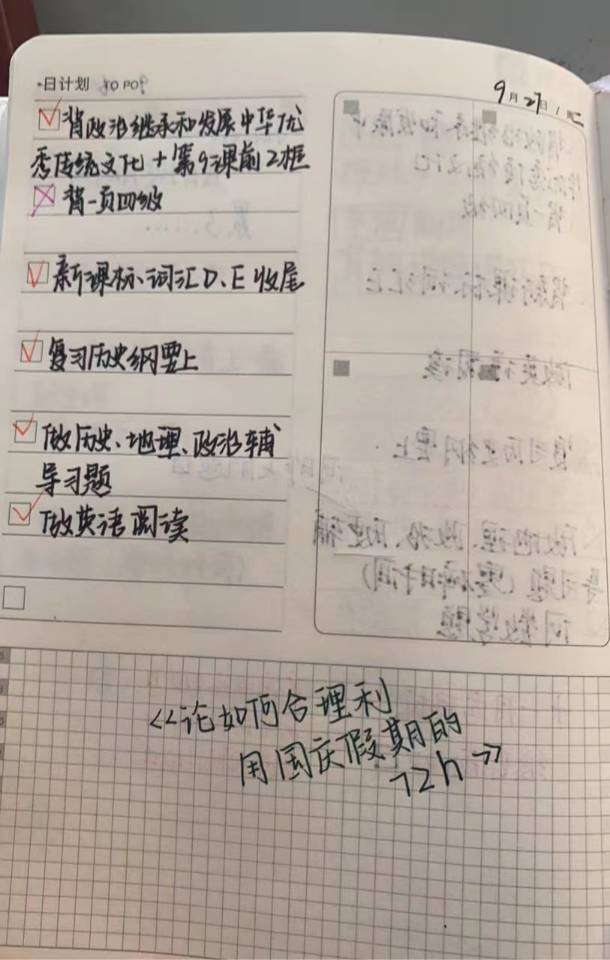 日计划 TO DO
9月27日/周二
背政治继承和发展中华优
秀传统文化+第9课前2框
背一页四级
新课标词汇D、E收尾
复习历史纲要上
做历史、地理、政治辅
导习题
做英语阅读
<<论如何合理利
用国庆假期的
72h>>